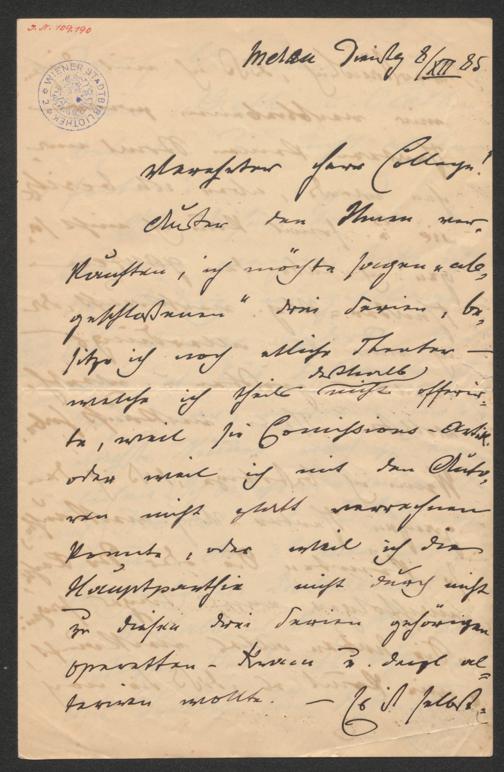 J. N. 109.190
WIENER STADTBIBLIOTHEK
Meran Dienstg 8/XII 85
Verehrter Herr College!
Außer den Ihnen ver-
kauften, ich möchte sagen „ab-
geschloßenen“ drei Serien, be-
sitze ich noch etliche Theater –
deßhalb
welche ich theils nicht offerir-
te, weil sie Comissions-Artik.
oder weil ich mit den Auto-
ren nicht glatt verrechnen
konnte, oder weil ich die
Hauptparthie nicht durch nicht
zu diesen drei Serien gehörigen
Operetten-Kram u. dergl al-
teriren wollte. – Es ist selbst-